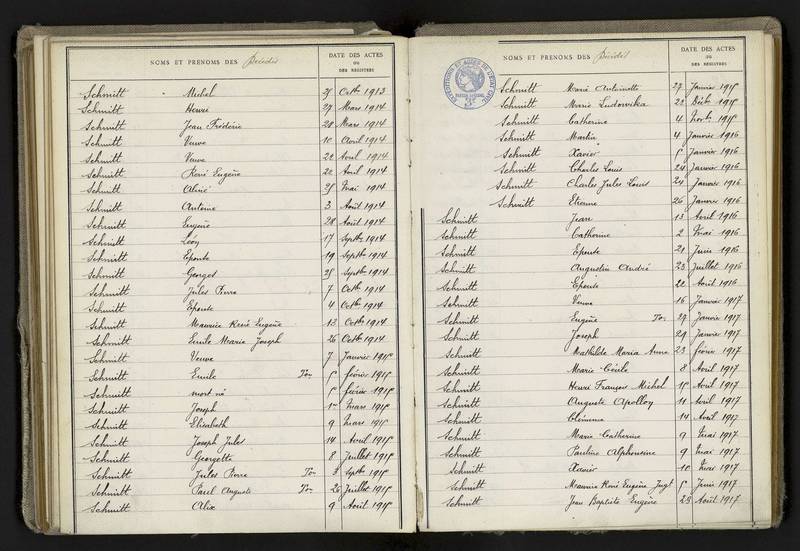 NOMS ET PRENOMS DES Décédés
DATE DES ACTES
OU
DES REGISTRES
Schmitt Michel 25 Octb 1913
Schmitt Henri 27 Mars 1914
Schmitt Jean Frédéric 28 Mars 1914
Schmitt Veuve 10 Avril 1914
Schmitt Veuve 22 Avril 1914
Schmitt René Eugène 20 Avril 1914
Schmitt 25 Mai 1914
Schmitt Antoine 3 Août 1914
Schmitt Eugène 28 Août 1914
Schmitt Léon 17 Septb 1914
Schmitt Epouse 19 Septb 1914
Schmitt Georges 25 Septb 1914
Schmitt Jules Pierre 7 Octb 1914
Schmitt Epouse 4 Octb 1914
Schmitt Maurice René Eugène 13 Octb 1914
Schmitt Emile Marie Joseph 26 Octb 1914
Schmitt Veuve 7 Janvier 1915
Schmitt Emile Ton 5 février 1915
Schmitt mort né 5 février 1915
Schmitt Joseph Mars 1915
Schmitt Elisabeth 9 Mars 1915
Schmitt Joseph Jules 14 Avril 1915
Schmitt Georgette 8 Juillet 1915
Schmitt Jules Pierre Ton Septb 1915
Schmitt Paul Auguste Ton 26 Juillet 1915
Schmitt Alix 9 Août 1915
NOMS ET PRENOMS DES Décédés
DATE DES ACTES
OU
DES REGISTRES
Schmitt Marie Antoinette 27 Janvier 1915
Schmitt Marie Ludowika 22 Déc 1915
Schmitt Catherine 4 Novb 1915
Schmitt Martin 4 Janvier 1916
Schmitt Xavier 5 Janvier 1916
Schmitt Charles Louis 24 Janvier 1916
Schmitt Charles Jules Louis 24 Janvier 1916
Schmitt Etienne 26 Janvier 1916
Schmitt Jean 13 Avril 1916
Schmitt Catherine 2 Mai 1916
Schmitt Epouse 21 Juin 1916
Schmitt Augustin André 23 Juillet 1916
Schmitt Epouse 22 Août 1916
Schmitt Veuve 16 Janvier 1917
Schmitt Eugène Ton 29 Janvier 1917
Schmitt Joseph 29 Janvier 1917
Schmitt Mathilde Maria Anne 23 février 1917
Schmitt Marie Cécile 8 Avril 1917
Schmitt Henri François Michel 15 Avril 1917
Schmitt Auguste Apolloy 11 Avril 1917
Schmitt Clémence 14 Avril 1917
Schmitt Marie Catherine 9 Mai 1917
Schmitt Pauline Alphonsine 9 Mai 1917
Schmitt Xavier 10 Mai 1917
Schmitt Maurice René Eugène 5 Juin 1917
Schmitt Jean Baptiste Eugène 23 Août 1917